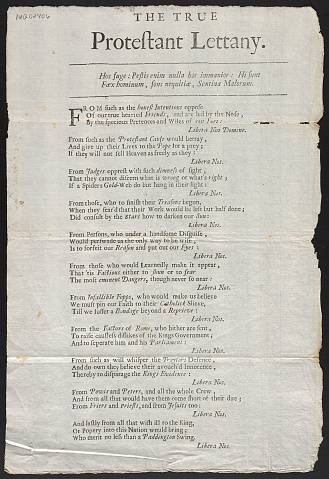 THE TRUE
Protestant Lettany.
Hos fuge: Pestis enim nulla hac immanior: Hi sunt
Fæx hominum, fons nequitiæ, Sentina Malorum.
FROM such as the honest Intentions oppose
Of our true hearted Friends, and are led by the Nose,
By the specious Pretences and Wiles of our Foes:
Libera Nos Domine.
From such as the Protestant Cause would betray,
And give up their Lives to the Pope for a prey;
If they will not sell Heaven as freely as they:
Libera Nos.
From Judges opprest with such dimness of sight,
That they cannot discern what is wrong or what's right;
If a Spiders Gold-Web do but hang in their light:
Libera Nos.
From those, who to finish their Treasons begun,
When they fear'd that their Work would be left but half done;
Did consult by the Stars how to darken our Sun:
Libera Nos.
From Persons, who under a handsome Disguise,
Would perswade us the only way to be wise,
Is to forfeit our Reason and put out our Eyes:
Libera Nos.
From those who would Learnedly make it appear,
That 'tis Factious either to shun or to fear
The most eminent Dangers, though never so near:
Libera Nos.
From Infallible Fopps, who would make us believe
We must pin our Faith to their Catholick Sleeve,
Till we suffer a Bondage beyond a Reprieve:
Libera Nos.
From the Factors of Rome, who hither are sent,
To raise causless dislikes of the Kings Government,
And to seperate him and his Parliament:
Libera Nos.
From such as will whisper the Traytors Defence,
And do own they believe their avouch'd Innocence,
Thereby to disparage the Kings Evidence:
Libera Nos.
From Powis and Peters, and all the whole Crew,
And from all that would have them come short of their due;
From Friers and Priests, and from Jesuits too:
Libera Nos.
And lastly from all that wish ill to the King,
Or Popery into this Nation would bring;
Who merit no less than a Paddington Swing.
Libera Nos.